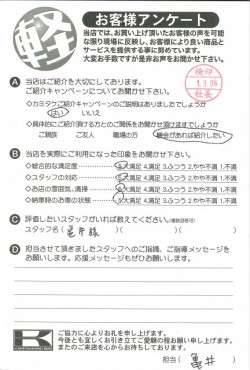 軽
お客様アンケート
当店では、お買い上げ頂いたお客様の声を可能
な限り現場に反映し、お客様により良い商品と
サービスを提供する事に努めています。
大変お手数ですが是非お声をお聞かせ下さい。
検印
1.9.06
社長
A 当店はご紹介を大切にしております。
ご紹介キャンペーンについてお聞かせ下さい。
◇カミタケご紹介キャンペーンのご説明はありましたでしょうか
はい いいえ
◇具体的にご紹介頂ける方とのご関係をお聞かせ頂けますでしょうか
ご親族 ご友人 職場の方 機会があれば紹介したい
B 当店を実際にご利用になった印象をお聞かせ下さい。
◇総合的な満足度 5.大満足 4.満足 3.ふつう 2.やや不満 1.不満
◇スタッフの対応 5.大満足 4.満足 3.ふつう 2.やや不満 1.不満
◇お店の雰囲気、清掃 5.大満足 4.満足 3.ふつう 2.やや不満 1.不満
◇納車時のお車の状態 5.大満足 4.満足 3.ふつう 2.やや不満 1.不満
C 評価したいスタッフがいれば教えてください。(複数回答可)
スタッフ名( 亀井様 )( )( )
D 担当させて頂きましたスタッフへのご指摘、ご指導メッセージを
お願いします。応援メッセージもぜひお願いします。
K
ご協力に心よりお礼を申し上げます。
今後とも宜しくお引き立てご愛顧の程お願い申し上げます。
またのご来店を心からお待ちしております。
担当( 亀井 )